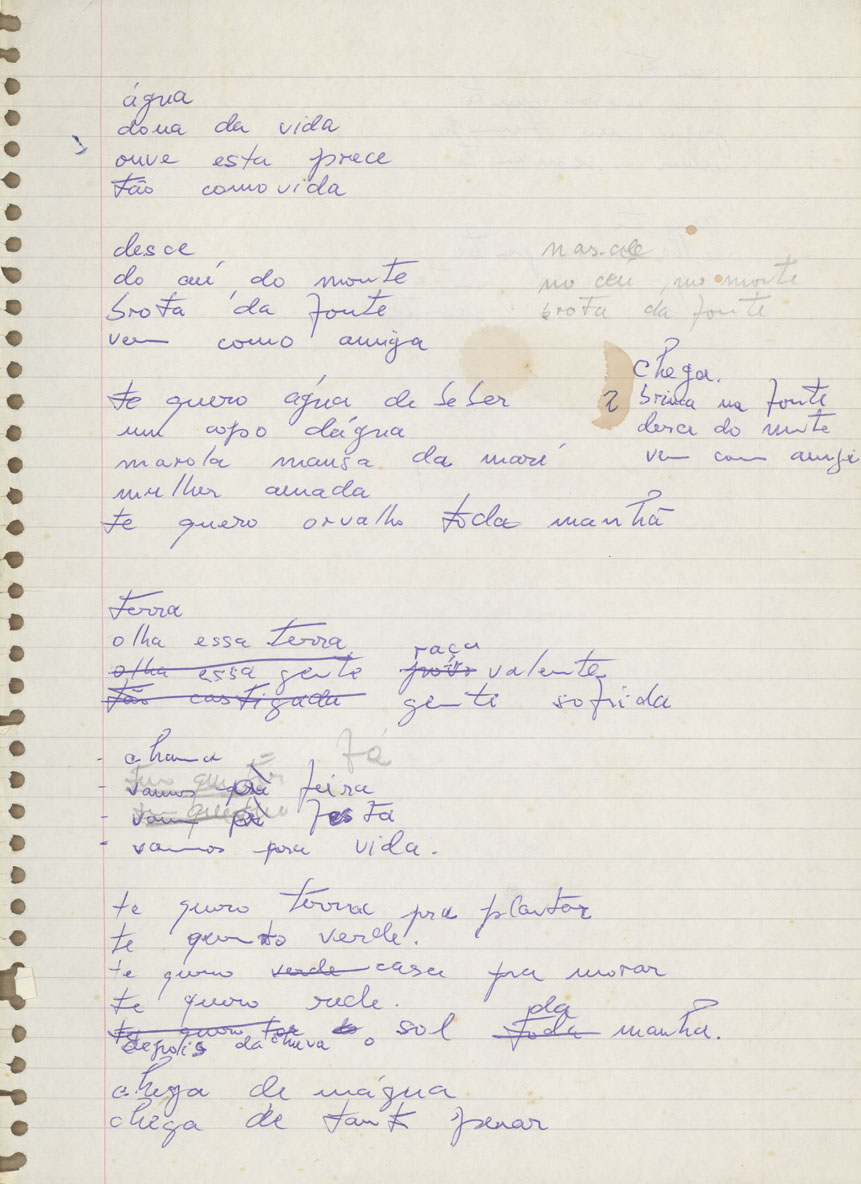 água
dona da vida
ouve esta prece
tão comovida
desce
do céu, do monte
brota da fonte
vem como amiga
nasce
no ceu, no monte
brota da fonte
chega.
2 brinca na fonte
desce do monte
vem como amiga
te quero água de beber
um copo dágua
marola mansa da maré
mulher amada
te quero orvalho toda manhã
terra
olha essa terra
olha essa gente raça valente
tão castigada gente sofrida
- chama
Já
- vamos pra feira
- vamos pra festa
- vamos pra vida.
te quero terra pra plantar
te quero verde.
te quero verde casa pra morar
te quero rede.
te quero sol toda da manhã.
depois da chuva o
chega de mágua
chega de tanto penar